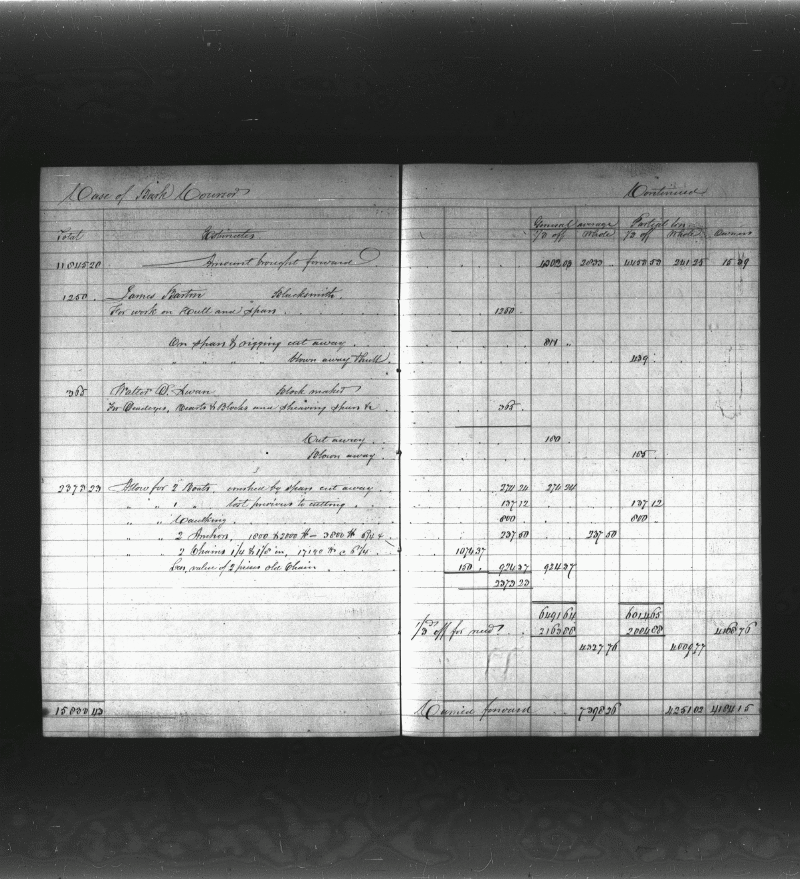 Case of Bark Continued
Total Estimates General average Partial loss Owners
1/3 off Whole 1/3 off Whole
11845 20 Amount brought forward 4382 03 2833 241 25 15 39
1250 James Barton Blacksmith
For work on Hull and Spars 1250
On Spars & rigging cut away 811
" " " " blown away & hull 439
365 Walter D. Swan Block maker
For Deadeyes, Hearts & Blocks and Sheaving Spars &c 365
Cut away 100
Blown away
2373 23 Allow for 2 Boats, crushed by Spars cut away 274 24 274 24
" " 1 " lost previous to cutting 137 12 137 12
" " Caulking 800 800
" " 2 Anchors, 1800 & 2000 lb - 3800 lb 6 1/4 c 237 50 237 50
" " 2 Chains 1 1/4 & 1 1/8 in, 17190 lb @ 6 1/4 1074 37
Less, value of 2 pieces old Chain 150 924 37 924 37
2373 23
6491 64 6014 65
1/3 off for new 2163 88 2004 88 4168 76
4327 76 4009 77
15833 43 Carried forward 7398 26 4251 02 4184 15